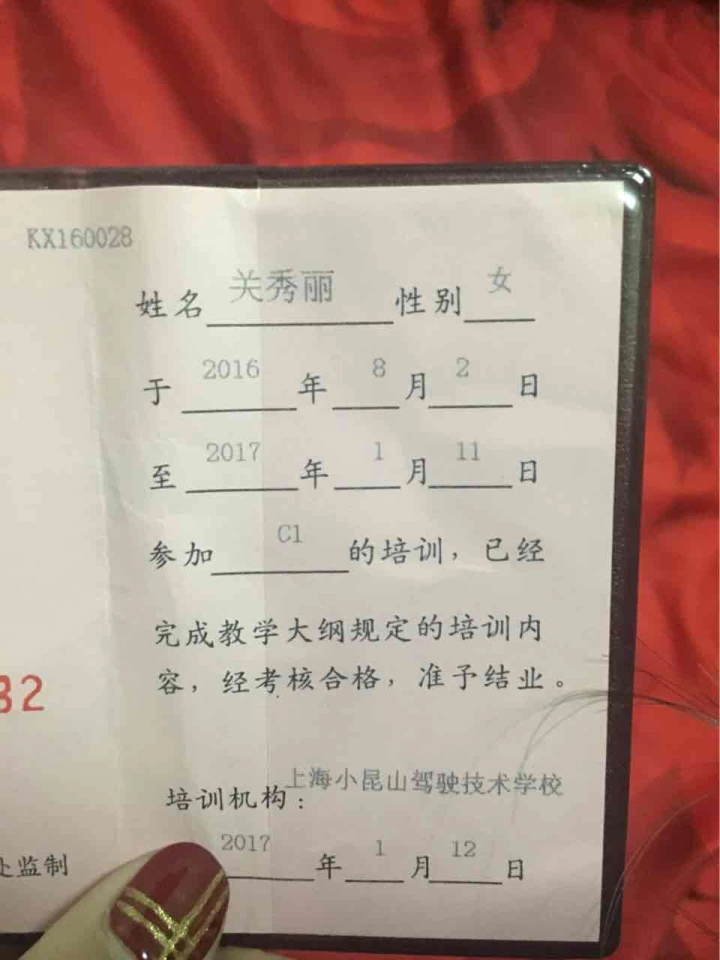 KX160028
姓名 关秀丽 性别 女
于 2016 年 8 月 2 日
至 2017 年 1 月 11 日
参加 C1 的培训，已经
完成教学大纲规定的培训内
容，经考核合格，准予结业。
32
培训机构：上海小昆山驾驶技术学校
处监制
2017 年 1 月 12 日